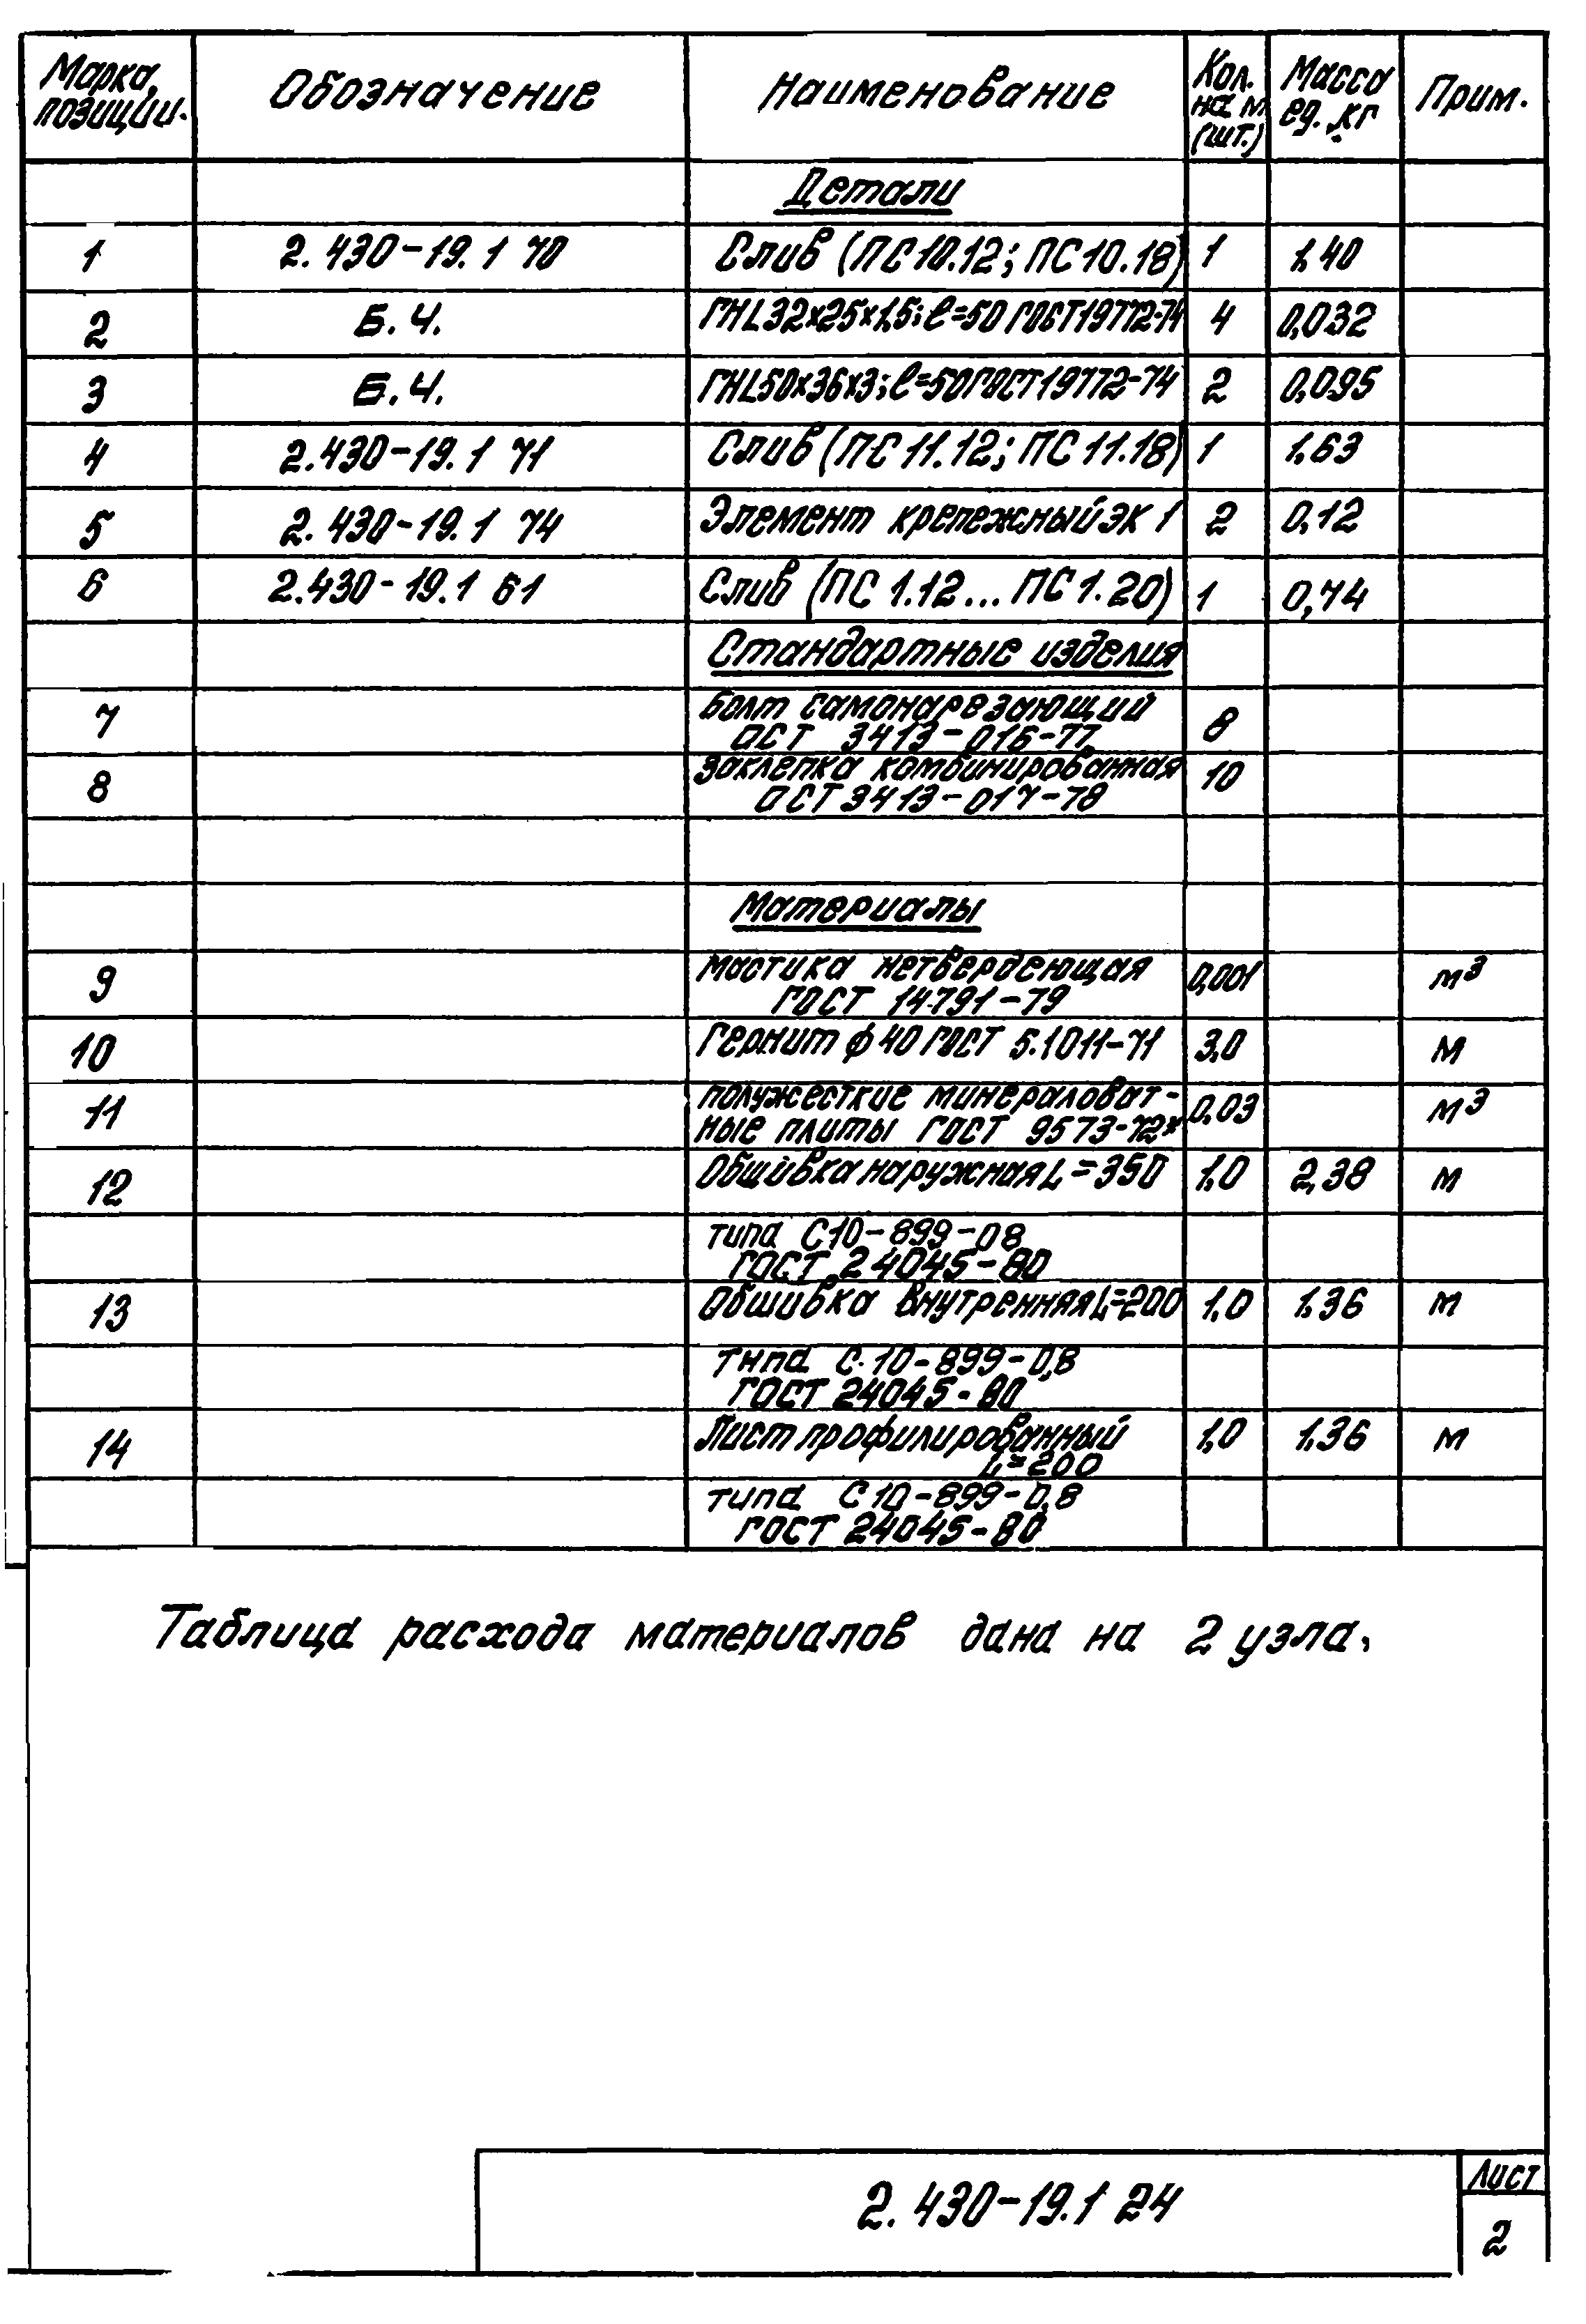 Марка, позиции. Обозначение Наименование Кол. на м (шт.) Масса ед. кг Прим.
Детали
1 2.430-19.1 70 Слив (ПС10.12; ПС10.18) 1 1,40
2 Б.Ч. ГНL32х25х1,5; ℓ=50 ГОСТ19772-74 4 0,032
3 Б.Ч. ГНL50х36х3; ℓ=50 ГОСТ19772-74 2 0,095
4 2.430-19.1 71 Слив (ПС 11.12; ПС 11.18) 1 1,63
5 2.430-19.1 74 Элемент крепежный ЭК 1 2 0,12
6 2.430-19.1 61 Слив (ПС 1.12... ПС 1.20) 1 0,74
Стандартные изделия
7 Болт самонарезающий 8
ОСТ 3413-016-77
8 Заклепка комбинированная 10
ОСТ 3413-017-78
Материалы
9 Мастика нетвердеющая 0,001 м³
ГОСТ 14791-79
10 Гернит ф 40 ГОСТ 5.1011-71 3,0 м
11 полужесткие минераловат- 0,03 м³
ные плиты ГОСТ 9573-72*
12 Обшивка наружная L=350 1,0 2,38 м
типа С10-899-08
ГОСТ 24045-80
13 Обшивка внутренняя L=200 1,0 1,36 м
типа С.10-899-0,8
ГОСТ 24045-80
14 Лист профилированный 1,0 1,36 м
L=200
типа С10-899-0,8
ГОСТ 24045-80
Таблица расхода материалов дана на 2 узла.
2.430-19.1 24
Лист
2